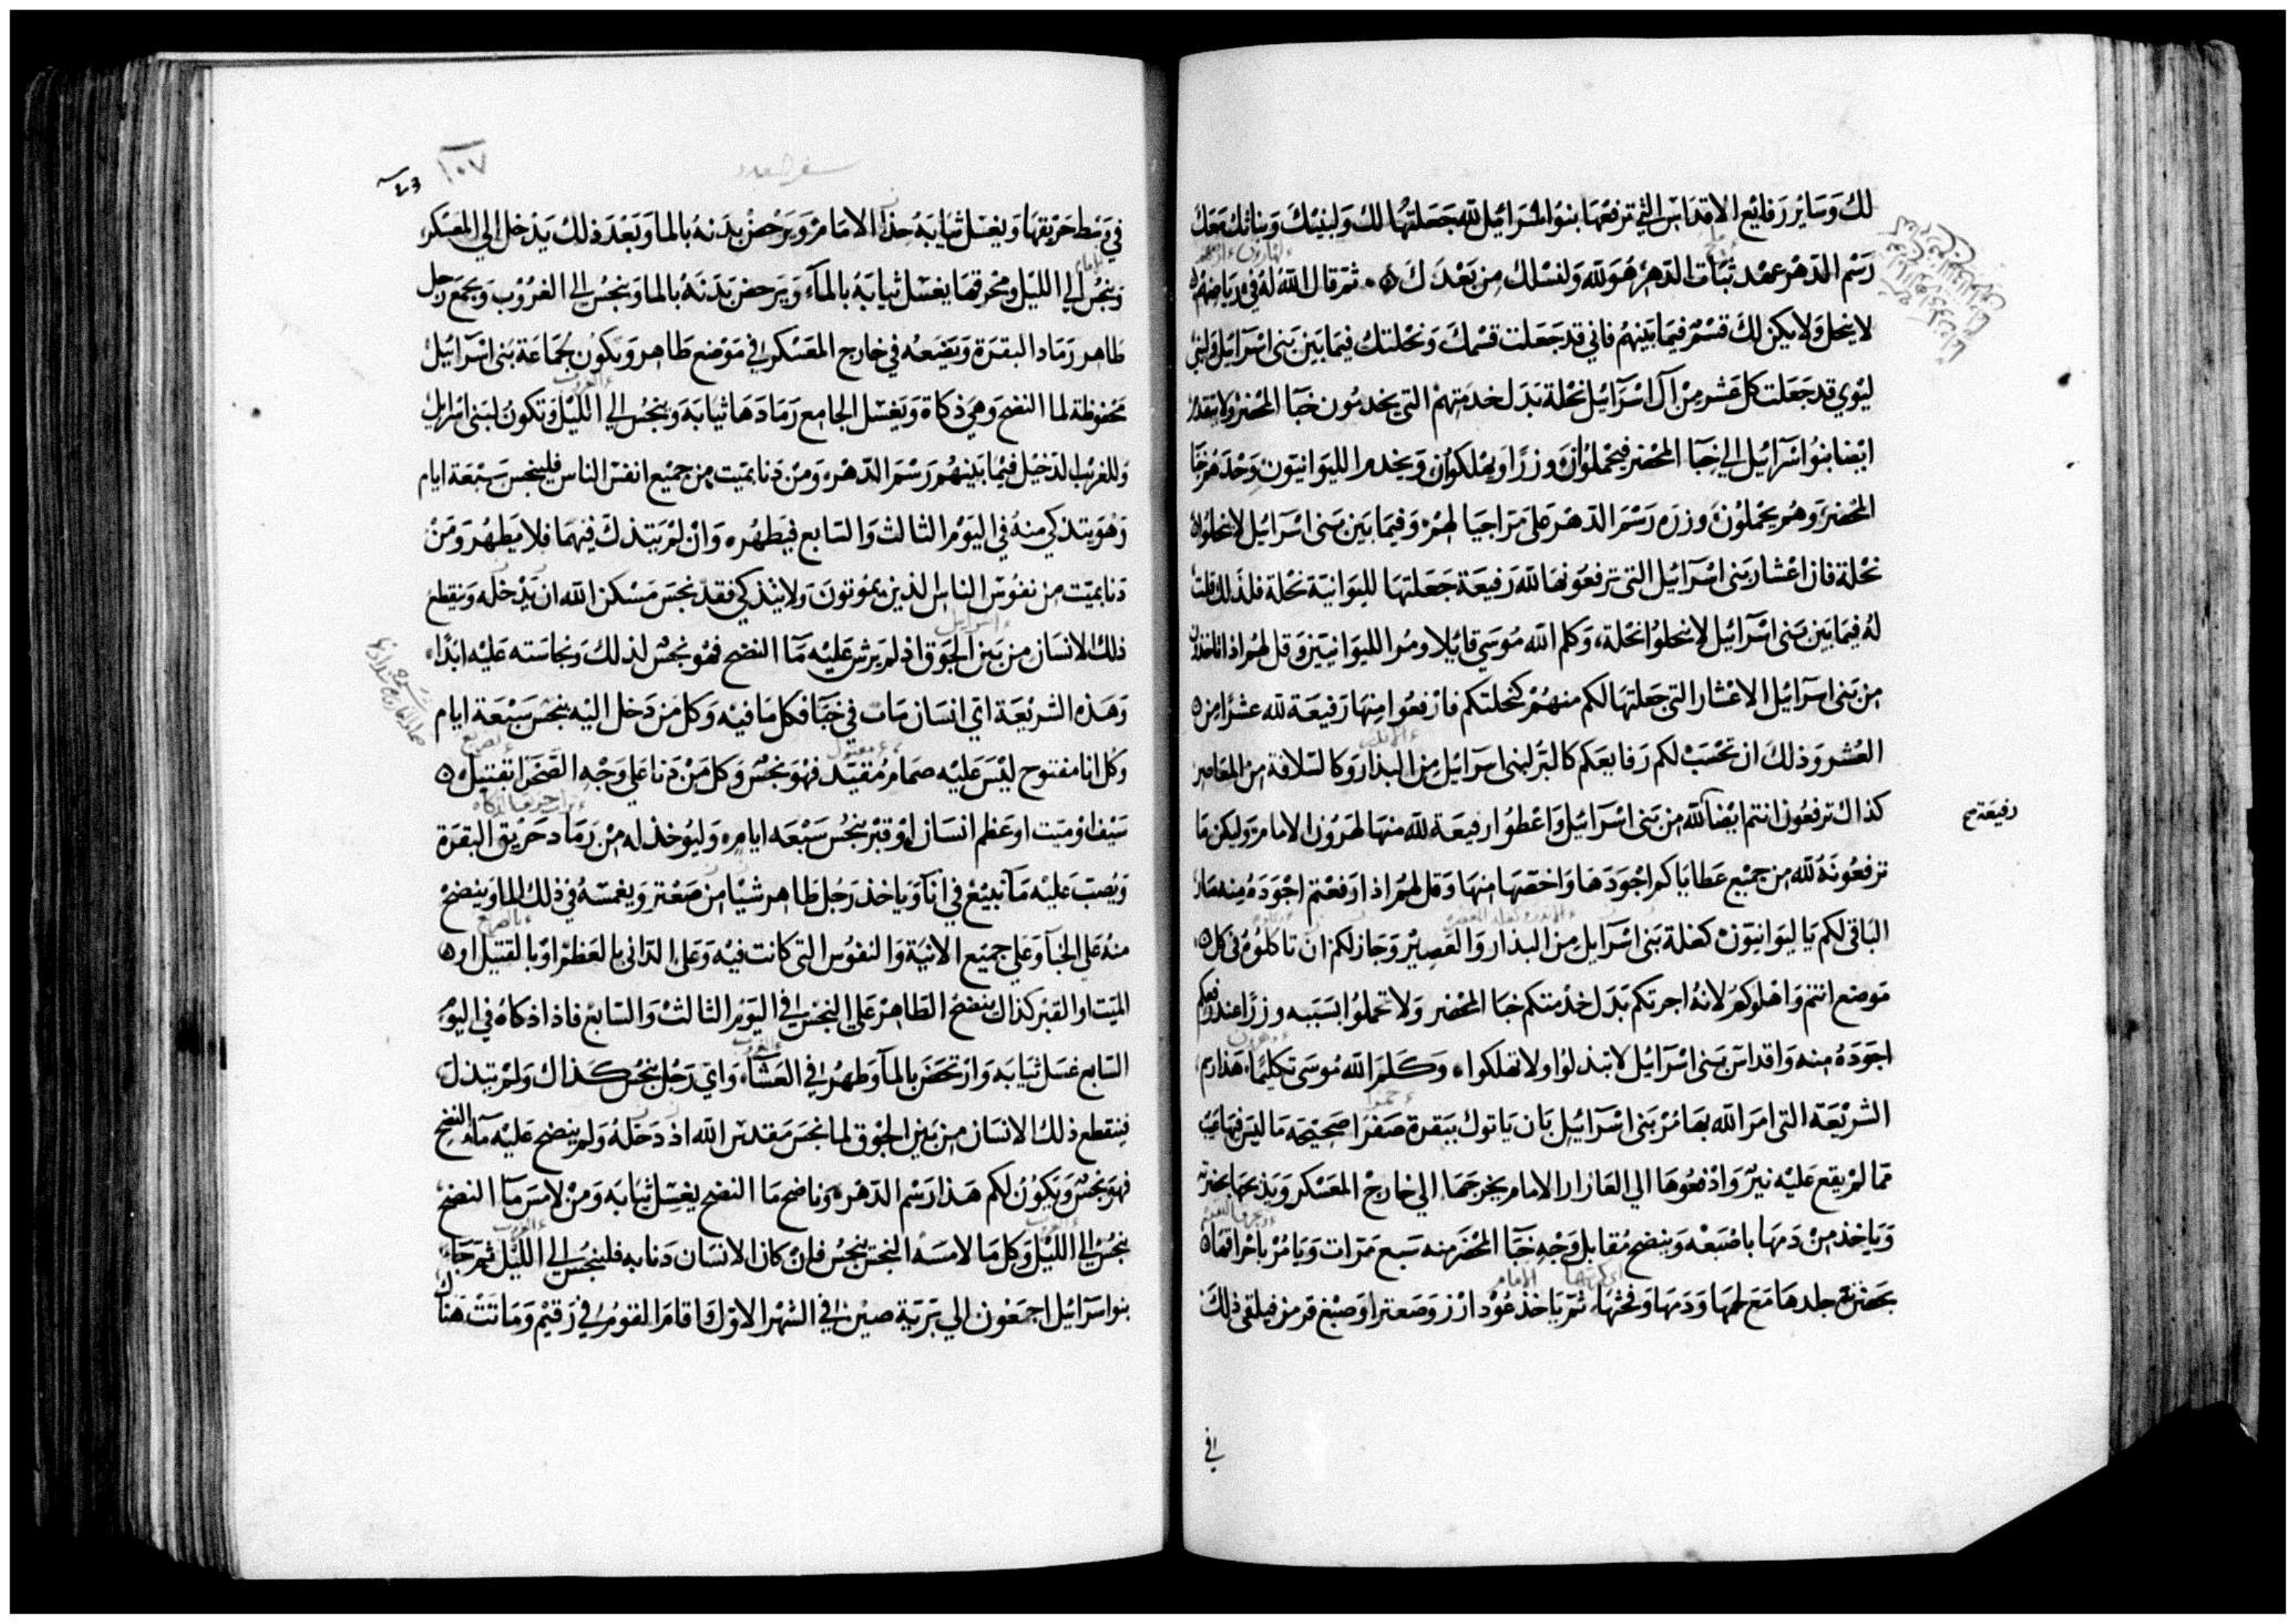 لك وساير رفايع الاقداس التي ترفعها بنوا اسرائيل لله جعلتها لك ولبنيك وبناتك معك
رسم الدهر عهد ثبات الدهر هو لله ولنسلك من بعدك ثم قال الله له في رياضهم
لا ينحل ولا يكن لك قسم فيما بينهم فاني قد جعلت قسمك ونحلتك فيما بين بني اسرآئيل ولبني
ليوي قد جعلت كل عشر من آل اسرآئيل نحلة بدل خدمتهم التي يخدمون خبآ المحضر ولا يتقدم
ايضا بنوا سرآئيل الي خبآ المحضر فيحملوان وزرا ويهلكوان ويخدم الليوانيون وحدهم خبا
المحضر وهم يحملون وزره رسم الدهر علي مر اجيالهم وفيما بين بني اسرآئيل لا ينحلوا
نحلة فان اعشار بني اسرآئيل التي ترفعونها لله رفيعة جعلتها لليوانية نحلة فلذلك قلت
له فيما بين بني اسرآئيل لا ينحلوا نحلة وكلم الله موسي قايلا ومر الليوانيين وقل لهم اذا اتاخذون
من بني اسرآئيل الاعشار التي جعلتها لكم منهم كنحلتكم فارفعوا منها رفيعة لله عشرا من
العشر وذلك ان تحسب لكم رفايعكم كالبر لبني اسرايل من البذار وكالسلافة من المعاصر
كذاك ترفعون انتم ايضا لله من بني اسرآئيل واعطوا رفيعة لله منها لهرون الامام وليكن ما
رفيعة صح
ترفعونه لله من جميع عطاياكم اجودها واخصها منها وقل لهم اذا رفعتم اجوده منه فان
الباقي لكم يا ليوانيون كغلة بني اسرآيل من البذار والعصير وجاز لكم ان تاكلوه في كل
موضع انتم واهلوكم لانه اجرتكم بدل خدمتكم خبا المحضر ولا تحملوا بسببه وزرا عند رفعكم
اجوده منه واقداس بني اسرآئيل لا تبذلوا ولا تهلكوا وكلم الله موسي تكليما هذا رسم
الشريعة التي امر الله بها مر بني اسرآئيل بان ياتوك ببقرة صفرا صحيحة ما ليس فيها عيب
مما لم يقع عليه نير وادفعوها الي العازار الامام يخرجها الي خارج المعسكر ويذبحها بحضرته
وياخذ من دمها باصبعه وينضح مقابل وجه خبآ المحضر منه سبع مرات ويامر باحراقها
بحضرته جلدها مع لحمها ودمها وفحثها ثم ياخذ عود ارز وصعترا وصبغ قرمز فيلقي ذلك
في
سفر العدد
١٠٧
في وسط حريقها ويغسل ثيابه هذا الامام ويرحض بدنه بالما وبعد ذلك يدخل الي المعسكر
وينجس الي الليل ومحرقها يغسل ثيابه بالمآء ويرحض بدنه بالما وينجس الي الغروب ويجمع رجل
طاهر رماد البقرة ويضعه في خارج المعسكر في موضع طاهر ويكون لجماعة بني اسرآئيل
محفوظة لما النضح وهي ذكاة ويغسل الجامع رمادها ثيابه وينجس الي الليل وتكون لبني اسرايل
وللغريب الدخيل فيما بينهم رسم الدهر ومن دنا بميت من جميع انفس الناس فلينجس سبعة ايام
وهو يتذكي منه في اليوم الثالث والسابع فيطهر وان لم يتذك فيهما فلا يطهر ومن
دنا بميت من نفوس الناس الذين يموتون ولا يتذكي فقد نجس مسكن الله ان يدخله وينقطع
ذلك الانسان من بين الجوق اذ لم يرش عليه مآ النضح فهو نجس لذلك ونجاسته عليه ابدا
وهذه الشريعة اي انسان مات في خبآ فكل ما فيه وكل من دخل اليه ينجس سبعة ايام
وكل انا مفتوح ليس عليه صمام مقيد فهو نجس وكل من دنا علي وجه الصحرا بقتيل
سيف او ميت او عظم انسان او قبر ينجس سبعه ايام وليوخذ له من رماد حريق البقرة
ويصب عليه مآ نبيع في انآ وياخذ رجل طاهر شيا من صعتر ويغمسه في ذلك الما وينضح
منه علي الخبآ وعلي جميع الانية والنفوس التي كانت فيه وعلي الداني بالعظم او بالقتيل او
الميت او القبر كذاك ينضح الطاهر علي النجس في اليوم الثالث والسابع فاذا ذكاه في اليوم
السابع غسل ثيابه وارتحض بالمآ وطهر في العشآء واي رجل ينجس كذاك ولم يتذك
فينقطع ذلك الانسان من بين الجوق لما نجس مقدس الله اذ دخله ولم ينضح عليه مآ النضح
فهو نجس ويكون لكم هذا رسم الدهر وناضح ما النضح يغسل ثيابه ومن لامس مآ النضح
ينجس الي الليل وكل ما لامسه النجس ينجس فان كان الانسان دنا به فلينجس الي الليل ثم جآء
بنوا سرآئيل اجمعون الي برية صين في الشهر الاول واقام القوم في رقيم وماتت هناك